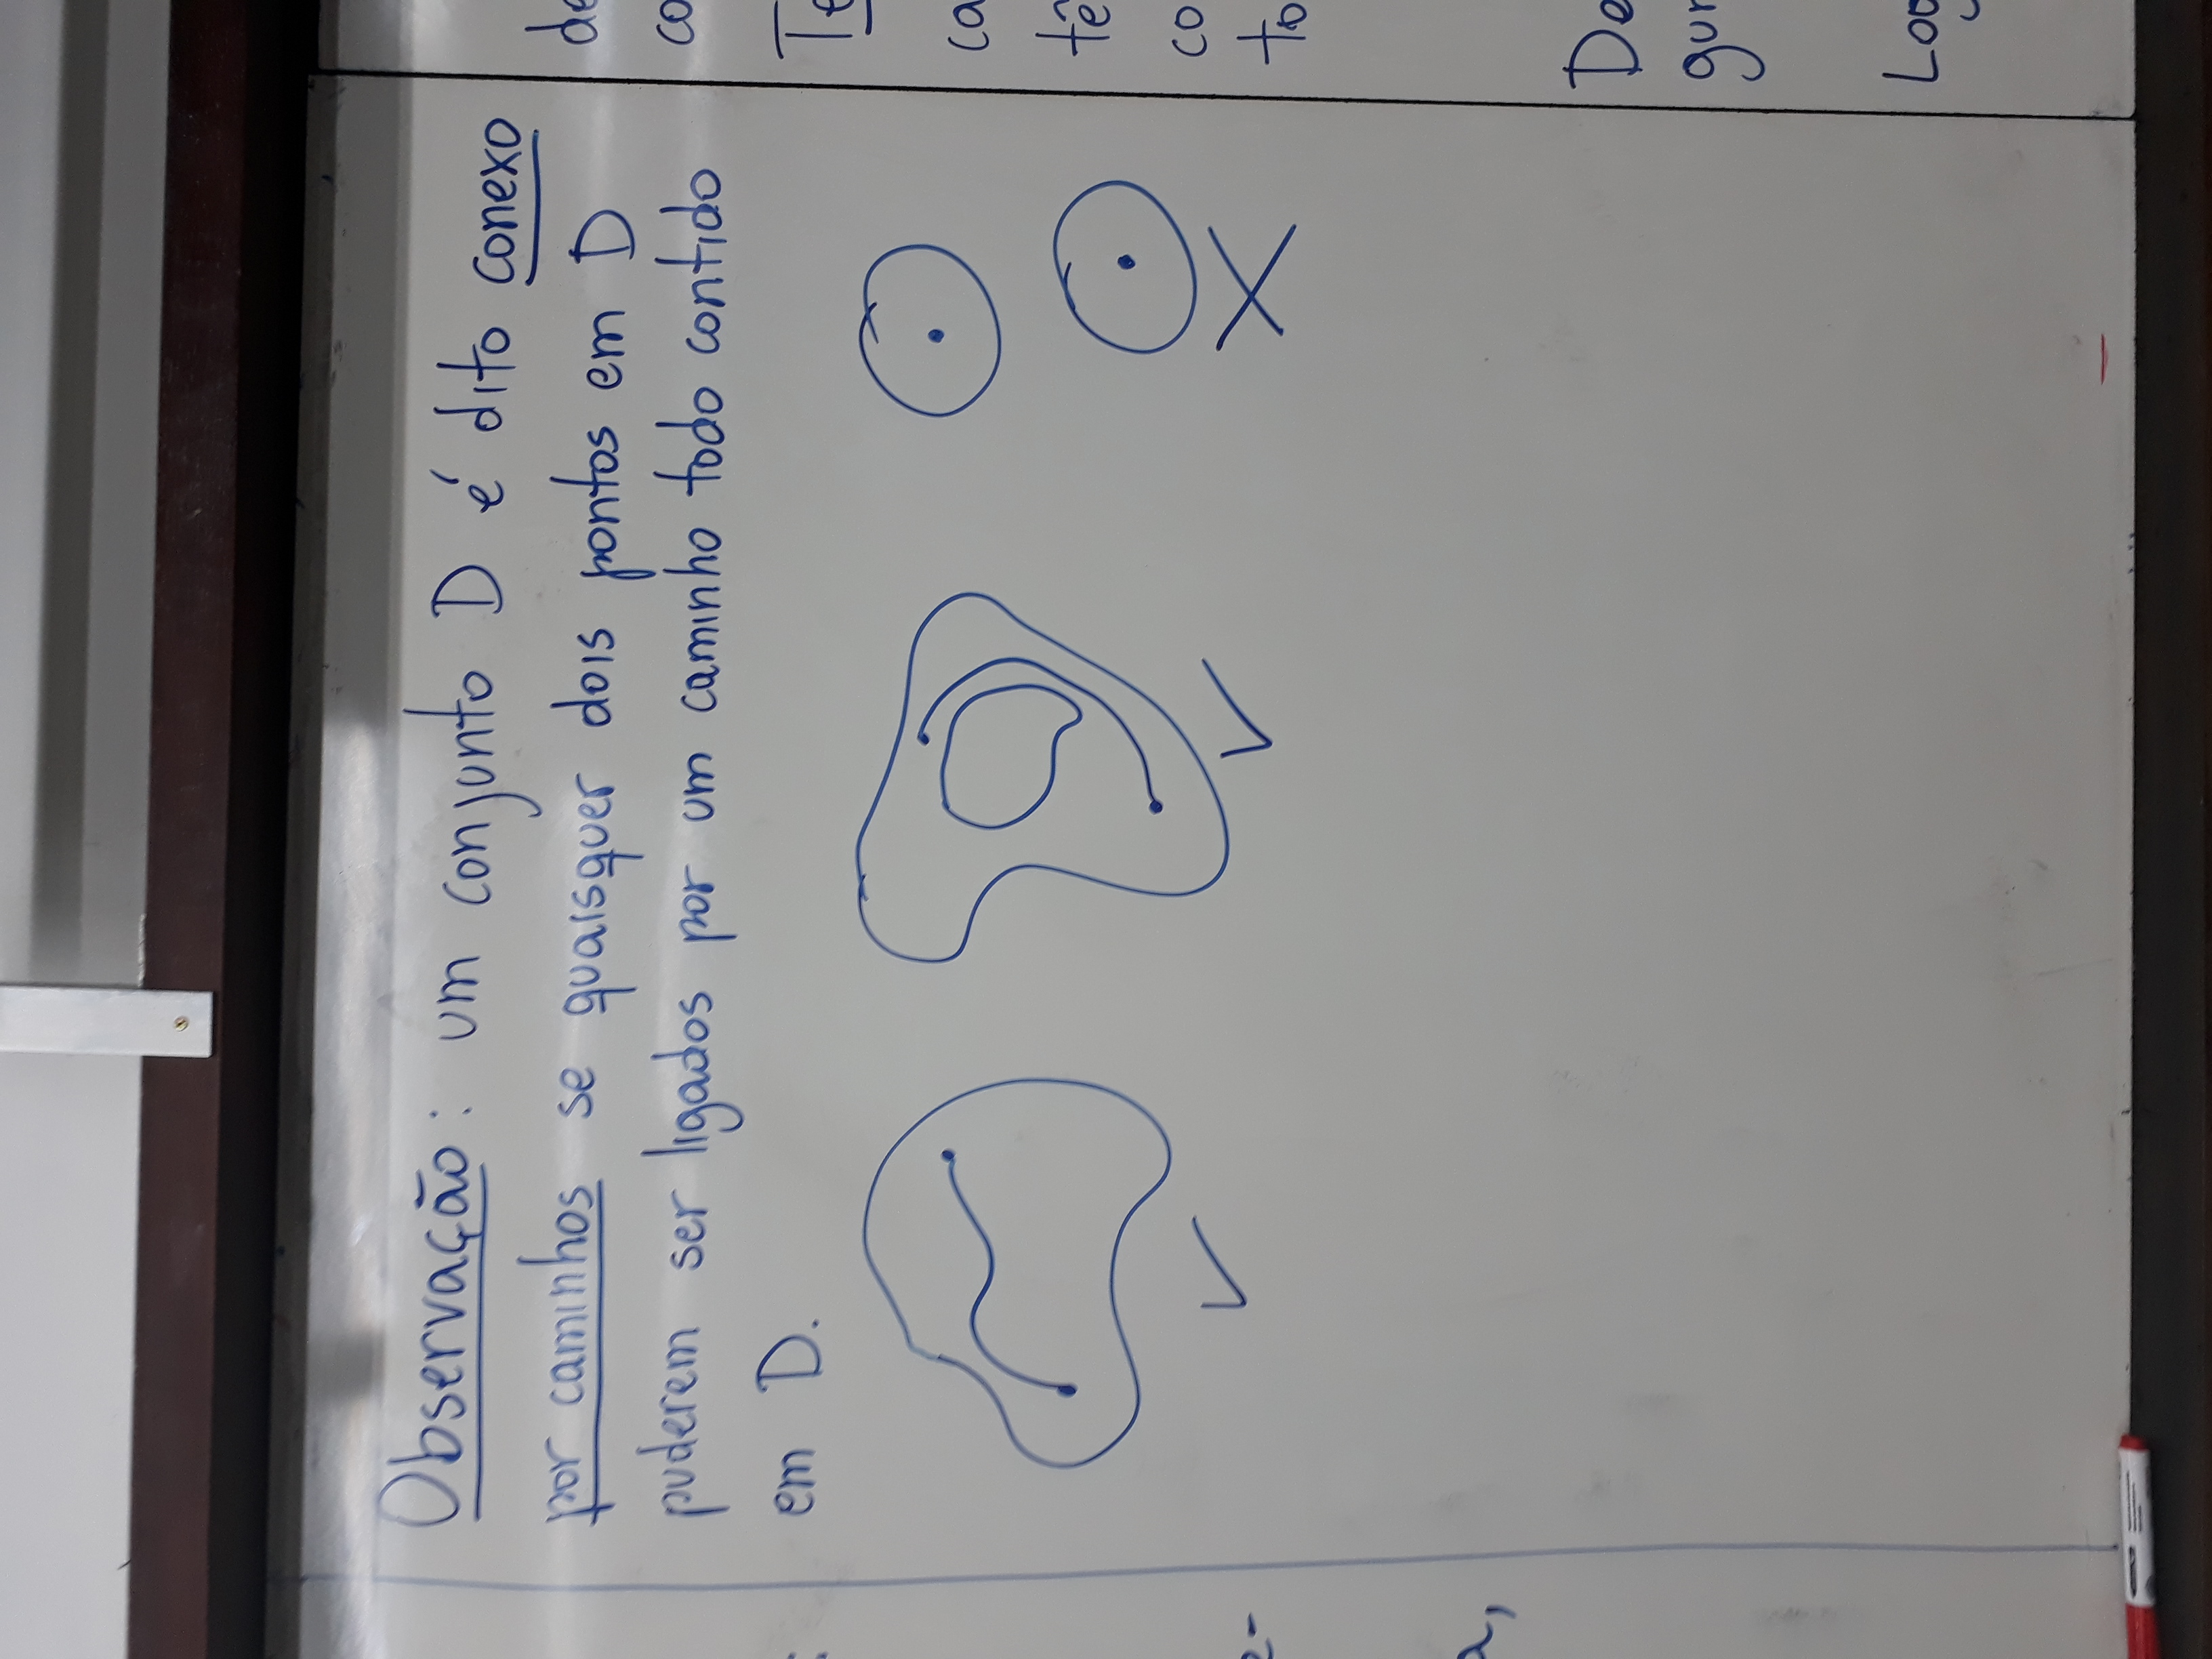 Observação: um conjunto D é dito conexo
por caminhos se quaisquer dois pontos em D
puderem ser ligados por um caminho todo contido
em D.
:
e-
a,
de
co
Te
ca
tê
co
to
De
gur
Log